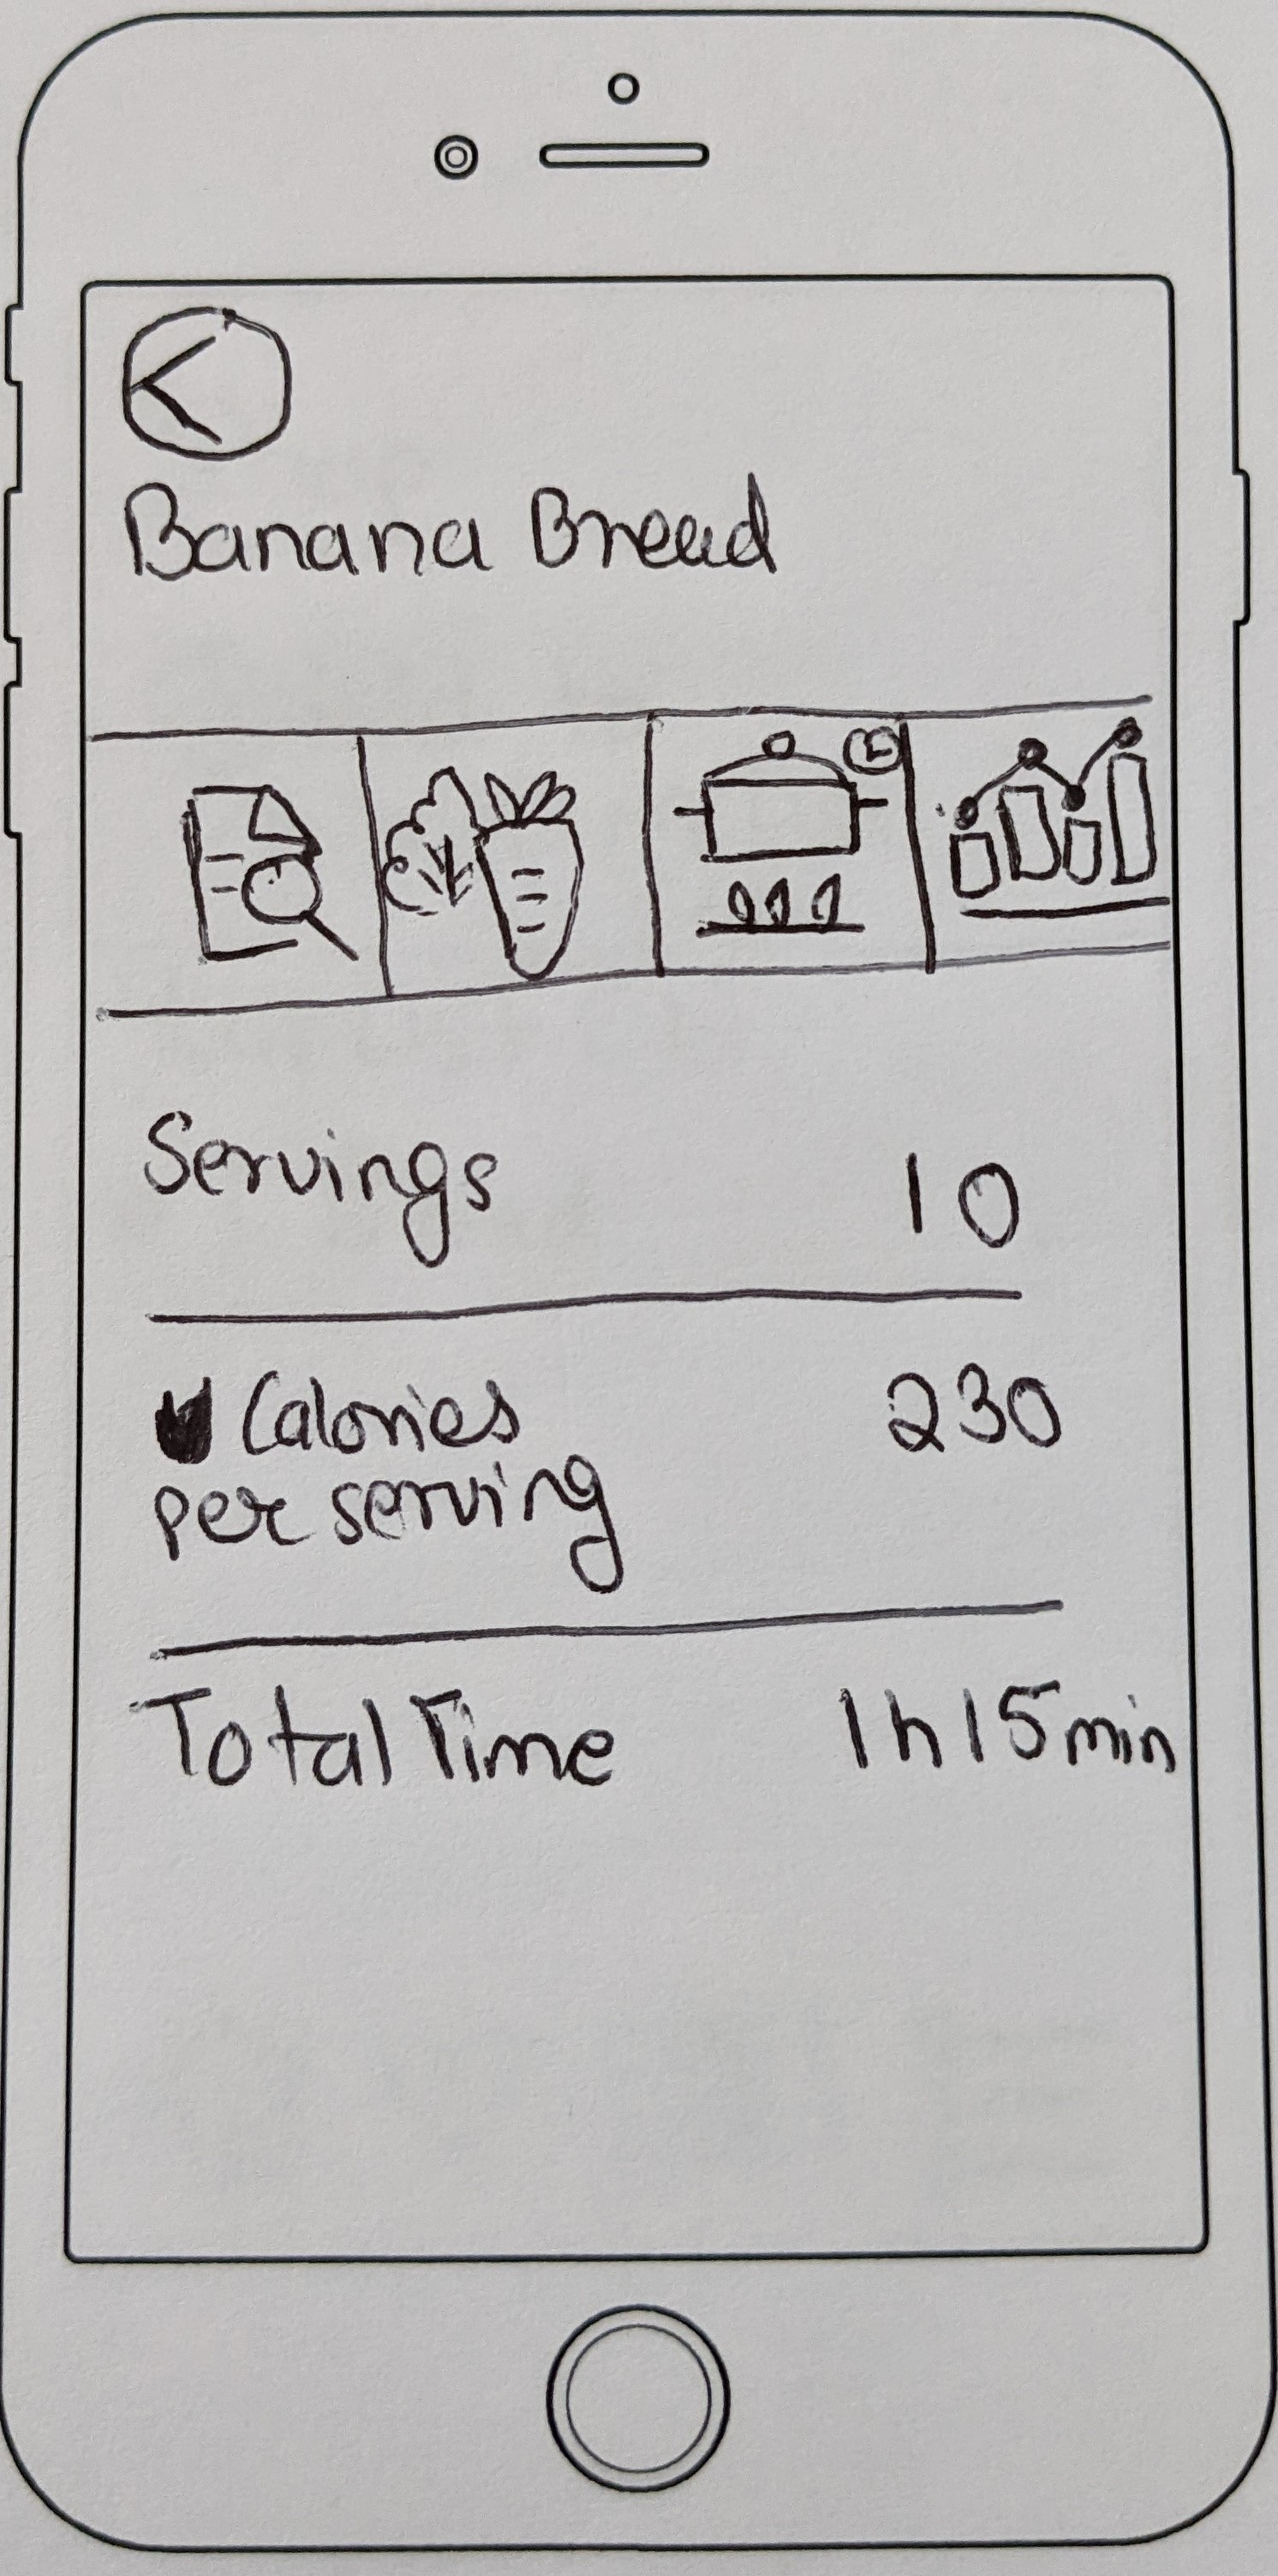 Banana Bread
Servings 10
Calories 230
per serving
Total Time 1h 15min